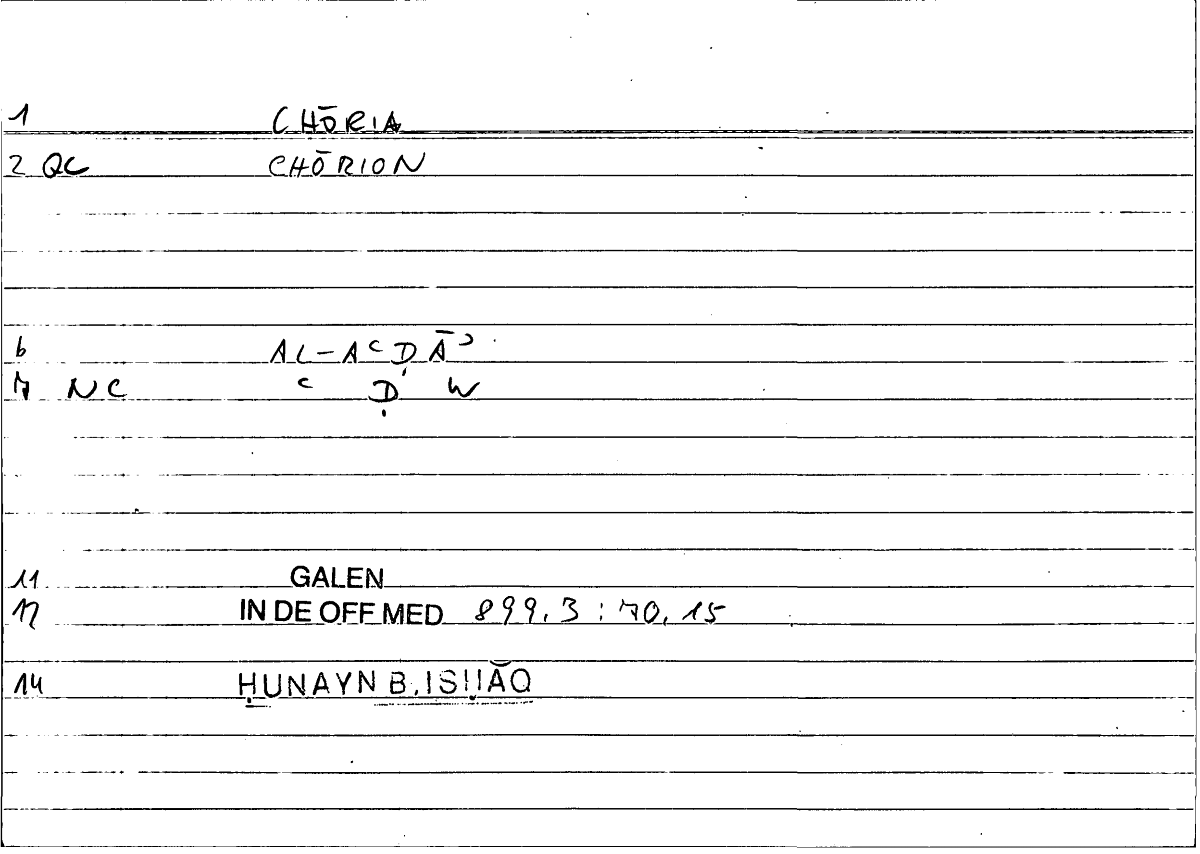 1 CHŌRIA
2 QC CHŌRION
6 AL-AʿḌĀʾ
7 NC ʿ Ḍ W
11 GALEN
12 IN DE OFF MED 899,3 : 70,15
14 ḤUNAYN B. ISḤĀQ